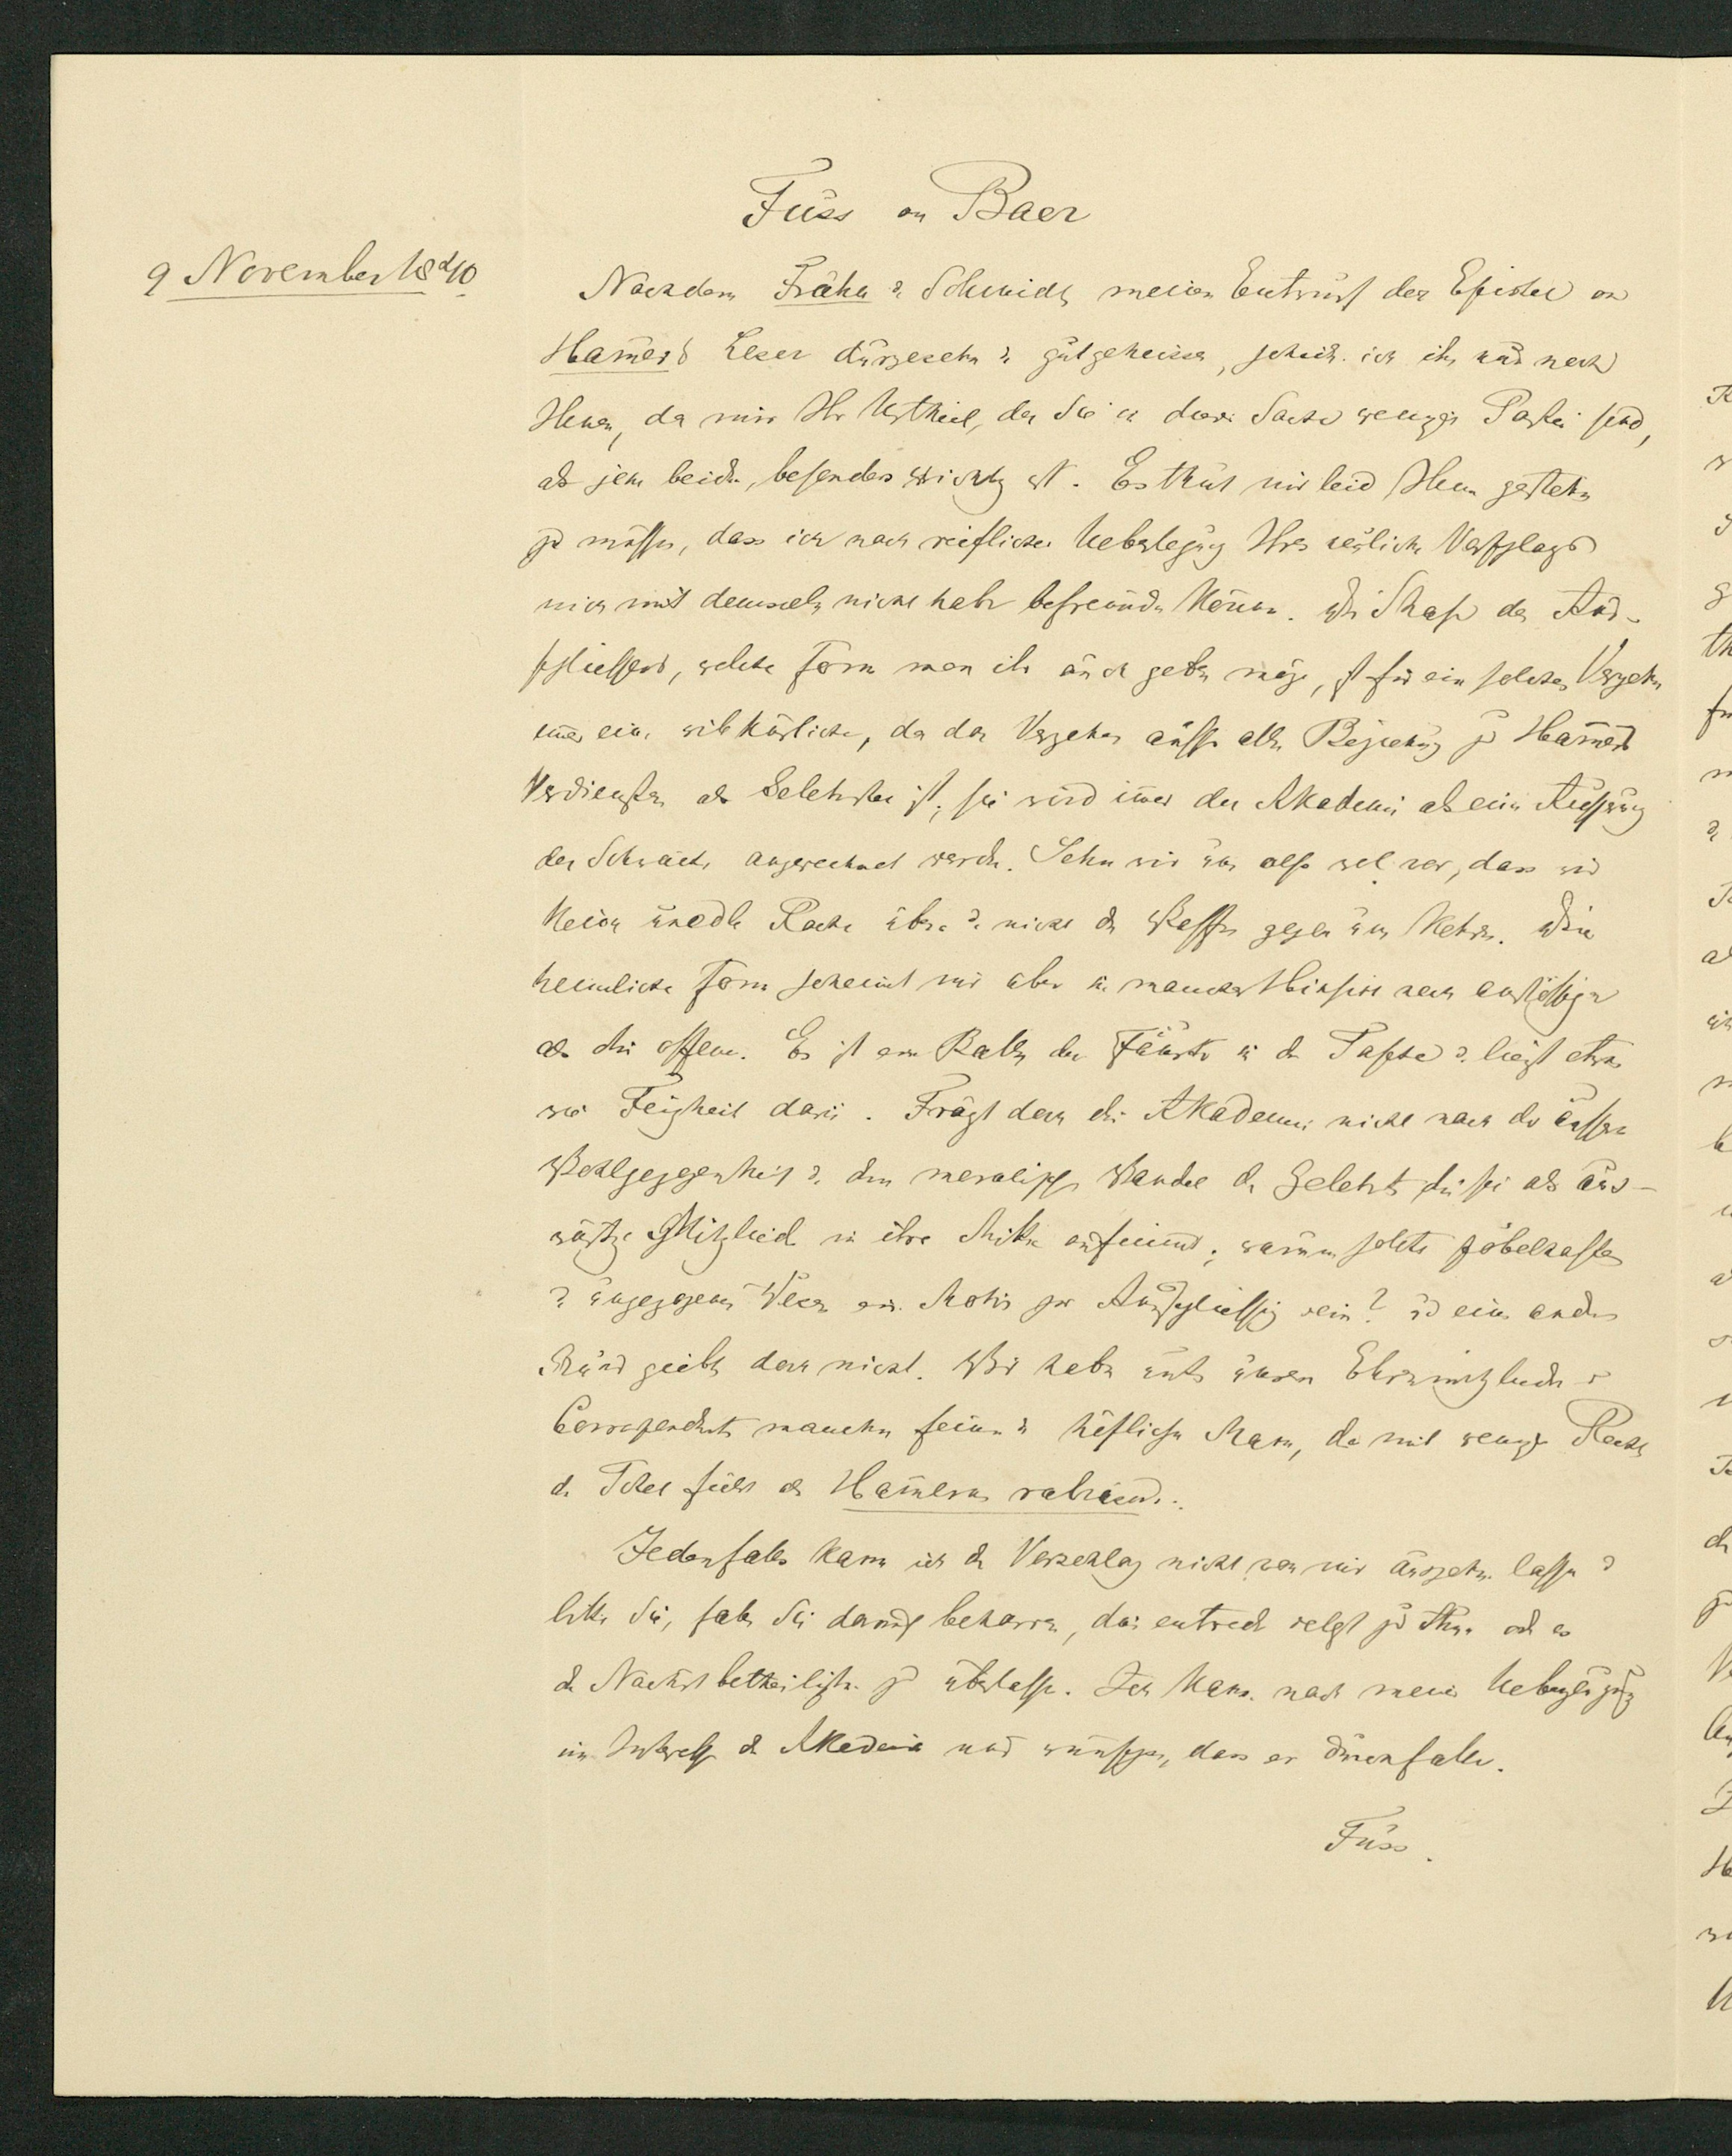 Fuss an Baer
9 November 1840
Nachdem Frähn & Schmidt meinen Entwurf der Epistel an
Hammers Leser durgesehn & gutgeheissen, schick ich ihn nun noch
Ihnen, da mir Ihr Urtheil, der Sie in dieser Sache weniger Partei sind,
als jene beiden, besonders wichtig ist. Es thut mir leid Ihnen gestehn
zu müssen, dass ich nach reiflicher Ueberlegung Ihres neulichen Vorschlags
mich mit demselben nicht habe befreunden können. Die Strafe des Aus-
schliessens, welche Form man ihr auch geben möge, ist für ein solches Vergehn
immer eine willkürliche, da das Vergehen ausser aller Beziehung zu Hammers
Verdiensten als Gelehrter ist; sie wird immer der Akademie als eine Äusserung
der Schwäche angerechnet werden. Sehn wir uns also wol vor, dass wir
keine unedle Rache üben & nicht die Waffen gegen uns kehren. Die
heimliche Form scheint mir aber in mancher Hinsicht noch anstössiger
als die offene. Es ist ein Ballen der Fäuste in der Tasche & liegt etwas
wie Feigheit darin. Frägt doch die Akademie nicht nach der äussern
Wohlgezogenheit & dem moralischen Wandel der Gelehrten die sie als aus-
wärtige Mitglieder in ihre Mitte aufnimmt; warum sollte pöbelhaftes
& ungezogenes Wesen ein Motiv zur Ausschliessung sein? und einen andern
Grund giebts doch nicht. Wir haben unter unsern Ehrenmitgliedern &
Correspondenten manchen feinen & höflichen Mann, der mit weniger Recht
den Titel führt als Hammerus rabiosus.
Jedenfalls kann ich den Vorschlag nicht von mir ausgehn lassen &
bitte Sie, falls Sie darauf beharren, dies entweder selbst zu thun oder es
den Nächstbetheiligten zu überlassen. Ich kann nach meiner Ueberzeugung
im Interesse der Akademie nur wünschen, dass er durchfalle.
Fuss.